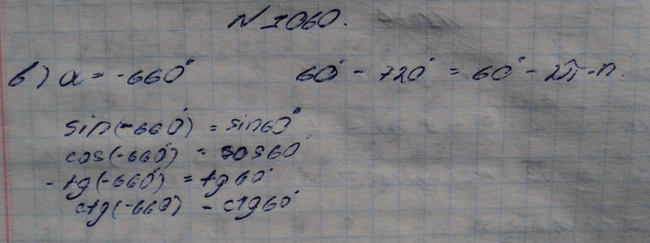 N 1060.
в) α = -660° 60° - 720° = 60° - 2π·n.
sin(-660°) = sin60°
cos(-660°) = cos60
- tg(-660°) = tg60°
ctg(-660°) - ctg60°